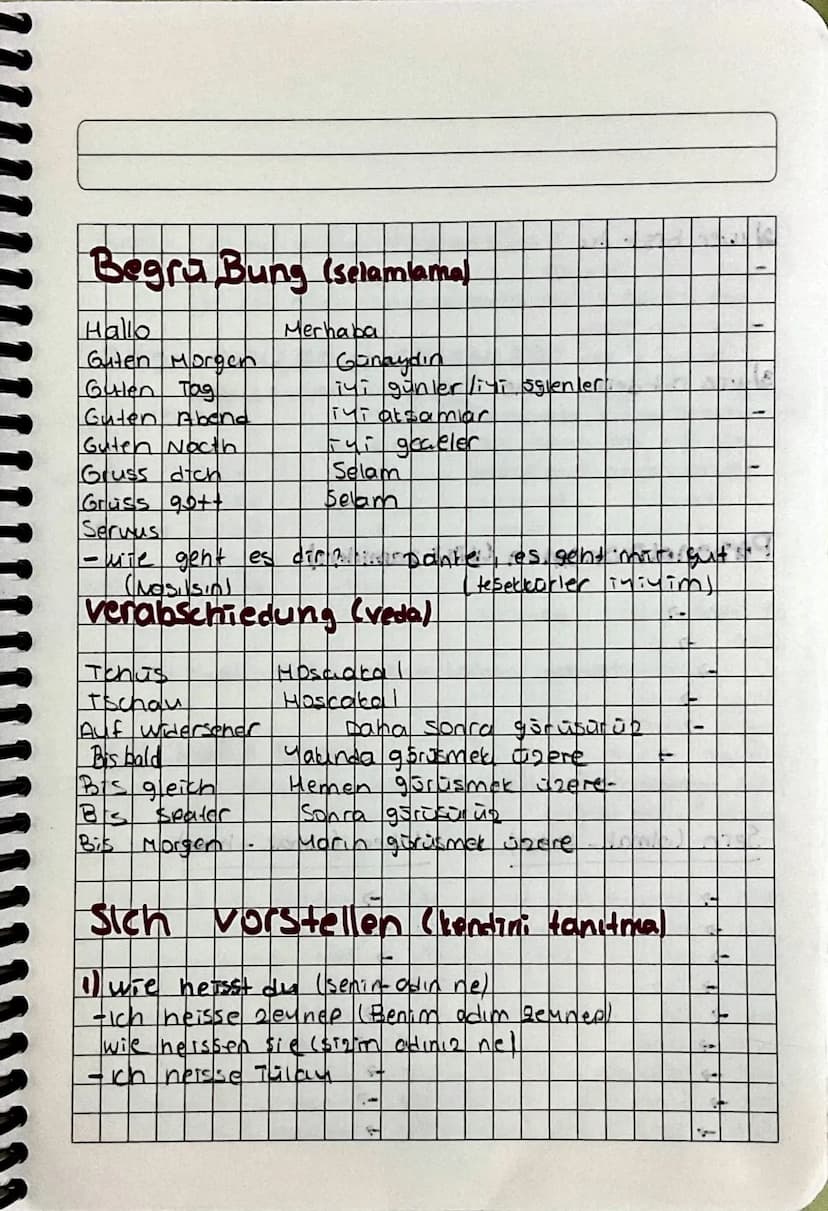 Begrüßung (selamlama)
Hallo Merhaba
Guten Morgen Günaydın
Guten Tag iyi günler/iyi öğlenler
Guten Abend iyi akşamlar
Guten Nacth iyi geceler
Gruss dich Selam
Grüss gott Selam
Servus
- wie geht es dir? Danke, es geht mir gut
(Nasılsın) (teşekkürler iyiyim)
Verabschiedung (veda)
Tchüs Hoşçakal
Tschau Hoscakal
Auf Widersehen Daha sonra görüşürüz
Bis bald Yakında görüşmek üzere
Bis gleich Hemen görüşmek üzere
Bis Speater Sonra görüşürüz
Bis Morgen Yarın görüşmek üzere
Sich vorstellen (kendini tanıtma)
1) wie heisst du (senin adın ne)
-ich heisse Zeynep (Benim adım Zeynep)
wie heissen sie (sizin adınız ne)
- ich heisse Tülay